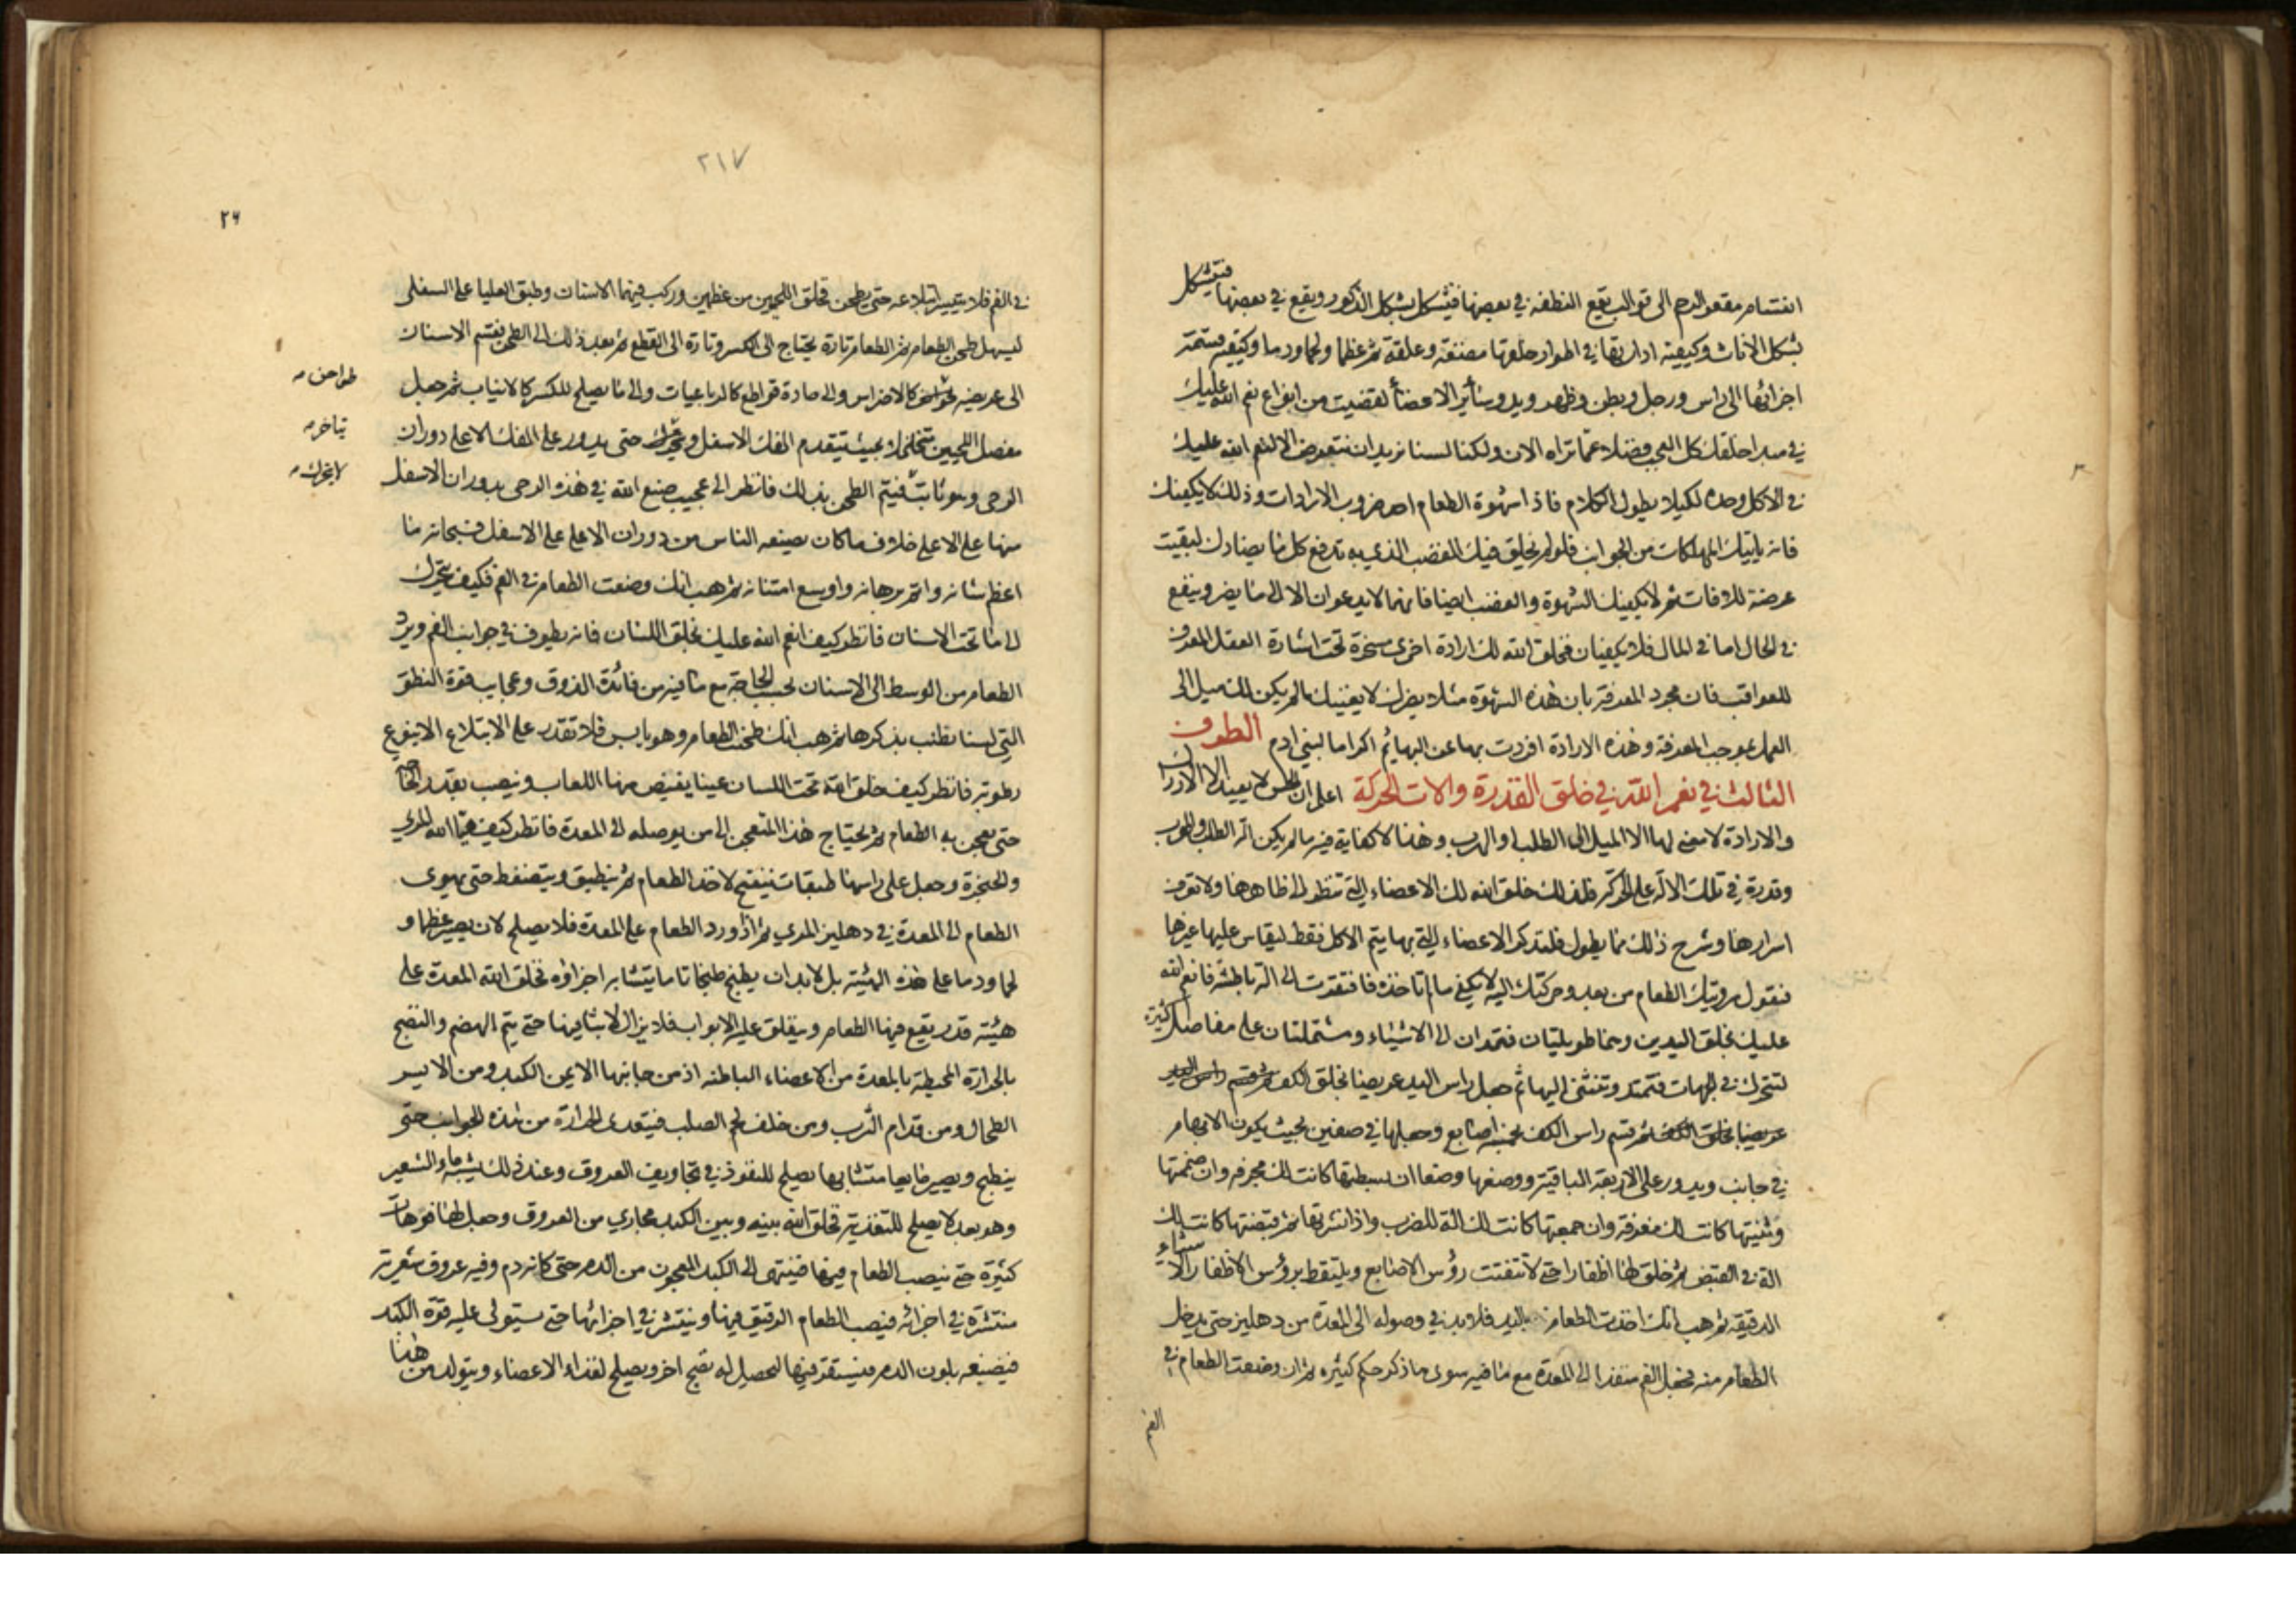 انقسام مقعر الرحم الى قوالب يقع النطفه في بعضها فيتشكل بشكل الذكور ويقع في بعضها فيتشكل
بشكل الاناث وكيفية ادارتها في اطوار خلقها مضغة وعلقة ثم عظما ولحما ودما وكيفية قسمة
اجزائها الى راس ورجل وبطن وظهر ويد وسائر الاعضاء لقضيت من انواع نعم الله عليك
في مبدا خلقك كل العجب فضلا عما تراه الان ولكنا لسنا نريد ان نتعرض الا لنعم الله عليك
في الاكل وحده لكيلا يطول الكلام فاذا شهوة الطعام احد ضروب الارادات وذلك لا يكفيك
فانه ياتيك المهلكات من الجوانب فلو لم يخلق فيك الغضب الذي به تدفع كل ما يضادك لبقيت
عرضة للافات ثم لا يكفيك الشهوة والغضب ايضا فانهما لا يدعوان الا الى ما يضر وينفع
في الحال اما في المال فلا يكفيان فخلق الله لك ارادة اخرى مسخرة تحت اشارة العقل المعرف
للعواقب فان مجرد المعرفة بان هذه الشهوة مثلا يضرك لا يغنيك ما لم يكن لك ميل الى
العمل بموجب المعرفة وهذه الارادة افردت بها عن البهائم اكراما لبني ادم الطرف
الثالث في نعم الله في خلق القدرة والات الحركة اعلم ان الحس لا يفيد الا الادراك
والارادة لا معنى لها الا الميل الى الطلب او الهرب وهذا لا كفاية فيه ما لم يكن الة الطلب والهرب
وقدرة في تلك الالة على الحركة فلذلك خلق الله لك الاعضاء التي تنظر الى ظاهرها ولا تعرف
اسرارها وشرح ذلك مما يطول فلنذكر الاعضاء التي بها يتم الاكل فقط ليقاس عليها غيرها
فنقول رؤيتك الطعام من بعد وحركتك اليه لا يكفي ما لم تاخذه فافتقرت الى الة باطشة فانعم الله
عليك بخلق اليدين وهما طويلتان فتمتدان الى الاشياء ومشتملتان على مفاصل كثيرة
لتتحرك في الجهات فتمتد وتنثني اليها ثم جعل راس اليد عريضا بخلق الكف ثم قسم راس اليد
عريضا بخلق الكف ثم قسم راس الكف بخمسة اصابع وجعلها في صفين بحيث يكون الابهام
في جانب ويدور على الاربعة الباقية ووضعها وضعا ان بسطتها كانت لك مجرفه وان ضممتها
وثنيتها كانت لك مغرفة وان جمعتها كانت لك الة للضرب واذا نشرتها ثم قبضتها كانت لك
الة في القبض ثم خلق لها اظفارا حتى لا تتفتت رؤس الاصابع ويلتقط برؤس الاظفار الاشياء
الدقيقة ثم هب انك اخذت الطعام باليد فلا بد في وصوله الى المعدة من دهليز حتى يدخل
الطعام منه فجعل الفم منفذا الى المعدة مع ما فيه سوى ما ذكر حكم كثيره ثم ان وضعت الطعام في
الفم
٢١٧
٢٦
في الفم فلا يتيسر ابتلاعه حتى يطحن فخلق اللحيين من عظمين وركب فيهما الاسنان وطبق العليا على السفلى
ليسهل طحن الطعام ثم الطعام تارة يحتاج الى الكسر وتارة الى القطع ثم بعد ذلك الى الطحن فقسم الاسنان
الى عريضه كالاضراس والى حادة قواطع كالرباعيات والى ما يصلح للكسر كالانياب ثم جعل
طواحن
مفصل اللحيين متخلخلا بحيث يتقدم الفك الاسفل حتى يدور على الفك الاعلى دوران
يتاخر
الرحى وهو ثابت فيتم الطحن بذلك فانظر الى عجيب صنع الله في هذه الرحى بدوران الاسفل
لا يتحرك
منها على الاعلى خلاف ما كان يصنعه الناس من دوران الاعلى على الاسفل فسبحانه ما
اعظم شانه واتم برهانه واوسع امتنانه ثم هب انك وضعت الطعام في الفم فكيف يتحرك
الى ما تحت الاسنان فانظر كيف انعم الله عليك بخلق اللسان فانه يطوف في جوانب الفم ويرد
الطعام من الوسط الى الاسنان بحسب الحاجة مع ما فيه من فائدة الذوق وعجايب قوة النطق
التي لسنا نطنب بذكرها ثم هب انك طحنت الطعام وهو يابس فلا تقدر على الابتلاع الا بنوع
رطوبة فانظر كيف خلق الله تحت اللسان عينا يفيض منها اللعاب وينصب بقدر الحاجة
حتى يعجن به الطعام ثم يحتاج هذا المنعجن الى من يوصله الى المعدة فانظر كيف هيا الله المري
والحنجرة وجعل على راسها طبقات ينفتح لاخذ الطعام ثم ينطبق وينضغط حتى يهوى
الطعام الى المعدة في دهليز المري ثم اذا ورد الطعام على المعدة فلا يصلح لان يصير عظما و
لحما ودما على هذه الهيئة بل لا بد ان يطبخ طبخا تاما يتشابه اجزاؤه فخلق الله المعدة على
هيئة قدر يقع فيها الطعام ويغلق عليه الابواب فلا يزال لابثا فيها حتى يتم الهضم والنضج
بالحرارة المحيطة بالمعدة من الاعضاء الباطنه اذ من جانبها الايمن الكبد ومن الايسر
الطحال ومن قدام الثرب ومن خلف لحم الصلب فيتعدى الحرارة من هذه الجوانب حتى
ينطبخ ويصير مايعا متشابها يصلح للنفوذ في تجاويف العروق وعند ذلك يشبه ماء الشعير
وهو بعد لا يصلح للتغذية فخلق الله بينه وبين الكبد مجاري من العروق وجعل لها فوهات
كثيرة حتى ينصب الطعام فيها فينتهي الى الكبد المعجون من الدم حتى كانه دم وفيه عروق شعرية
منتشرة في اجزائه فينصب الطعام الدقيق فيها وينتشر في اجزائها حتى يستولى عليه قوة الكبد
فيصبغه بلون الدم فيستقر فيها ليحصل له نضج اخر ويصلح لغذاء الاعضاء ويتولد من هذا